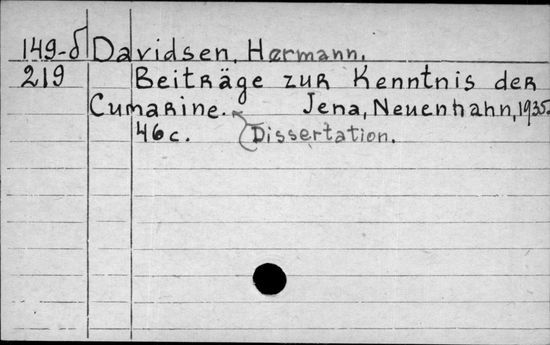 149-δ Davidsen, Hermann.
219 Beiträge zur Kenntnis der
Cumarine. Jena, Neuenhahn, 1935.
46c. (Dissertation.